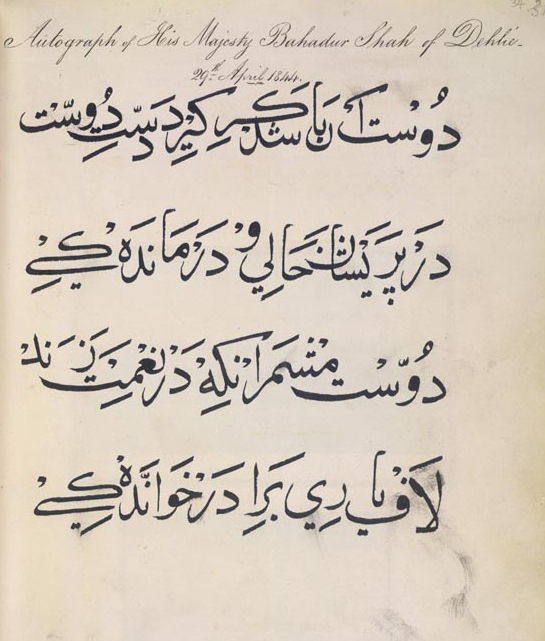 Autograph of His Majesty Bahadur Shah of Dehlie.
29th April 1844.
دُوست آن باشد که کیرد دست دوست
در پریشان حالي و درمانده کي
دُوست مشمر آنکه در نعمت زند
لاف یاري برادر خوانده کي